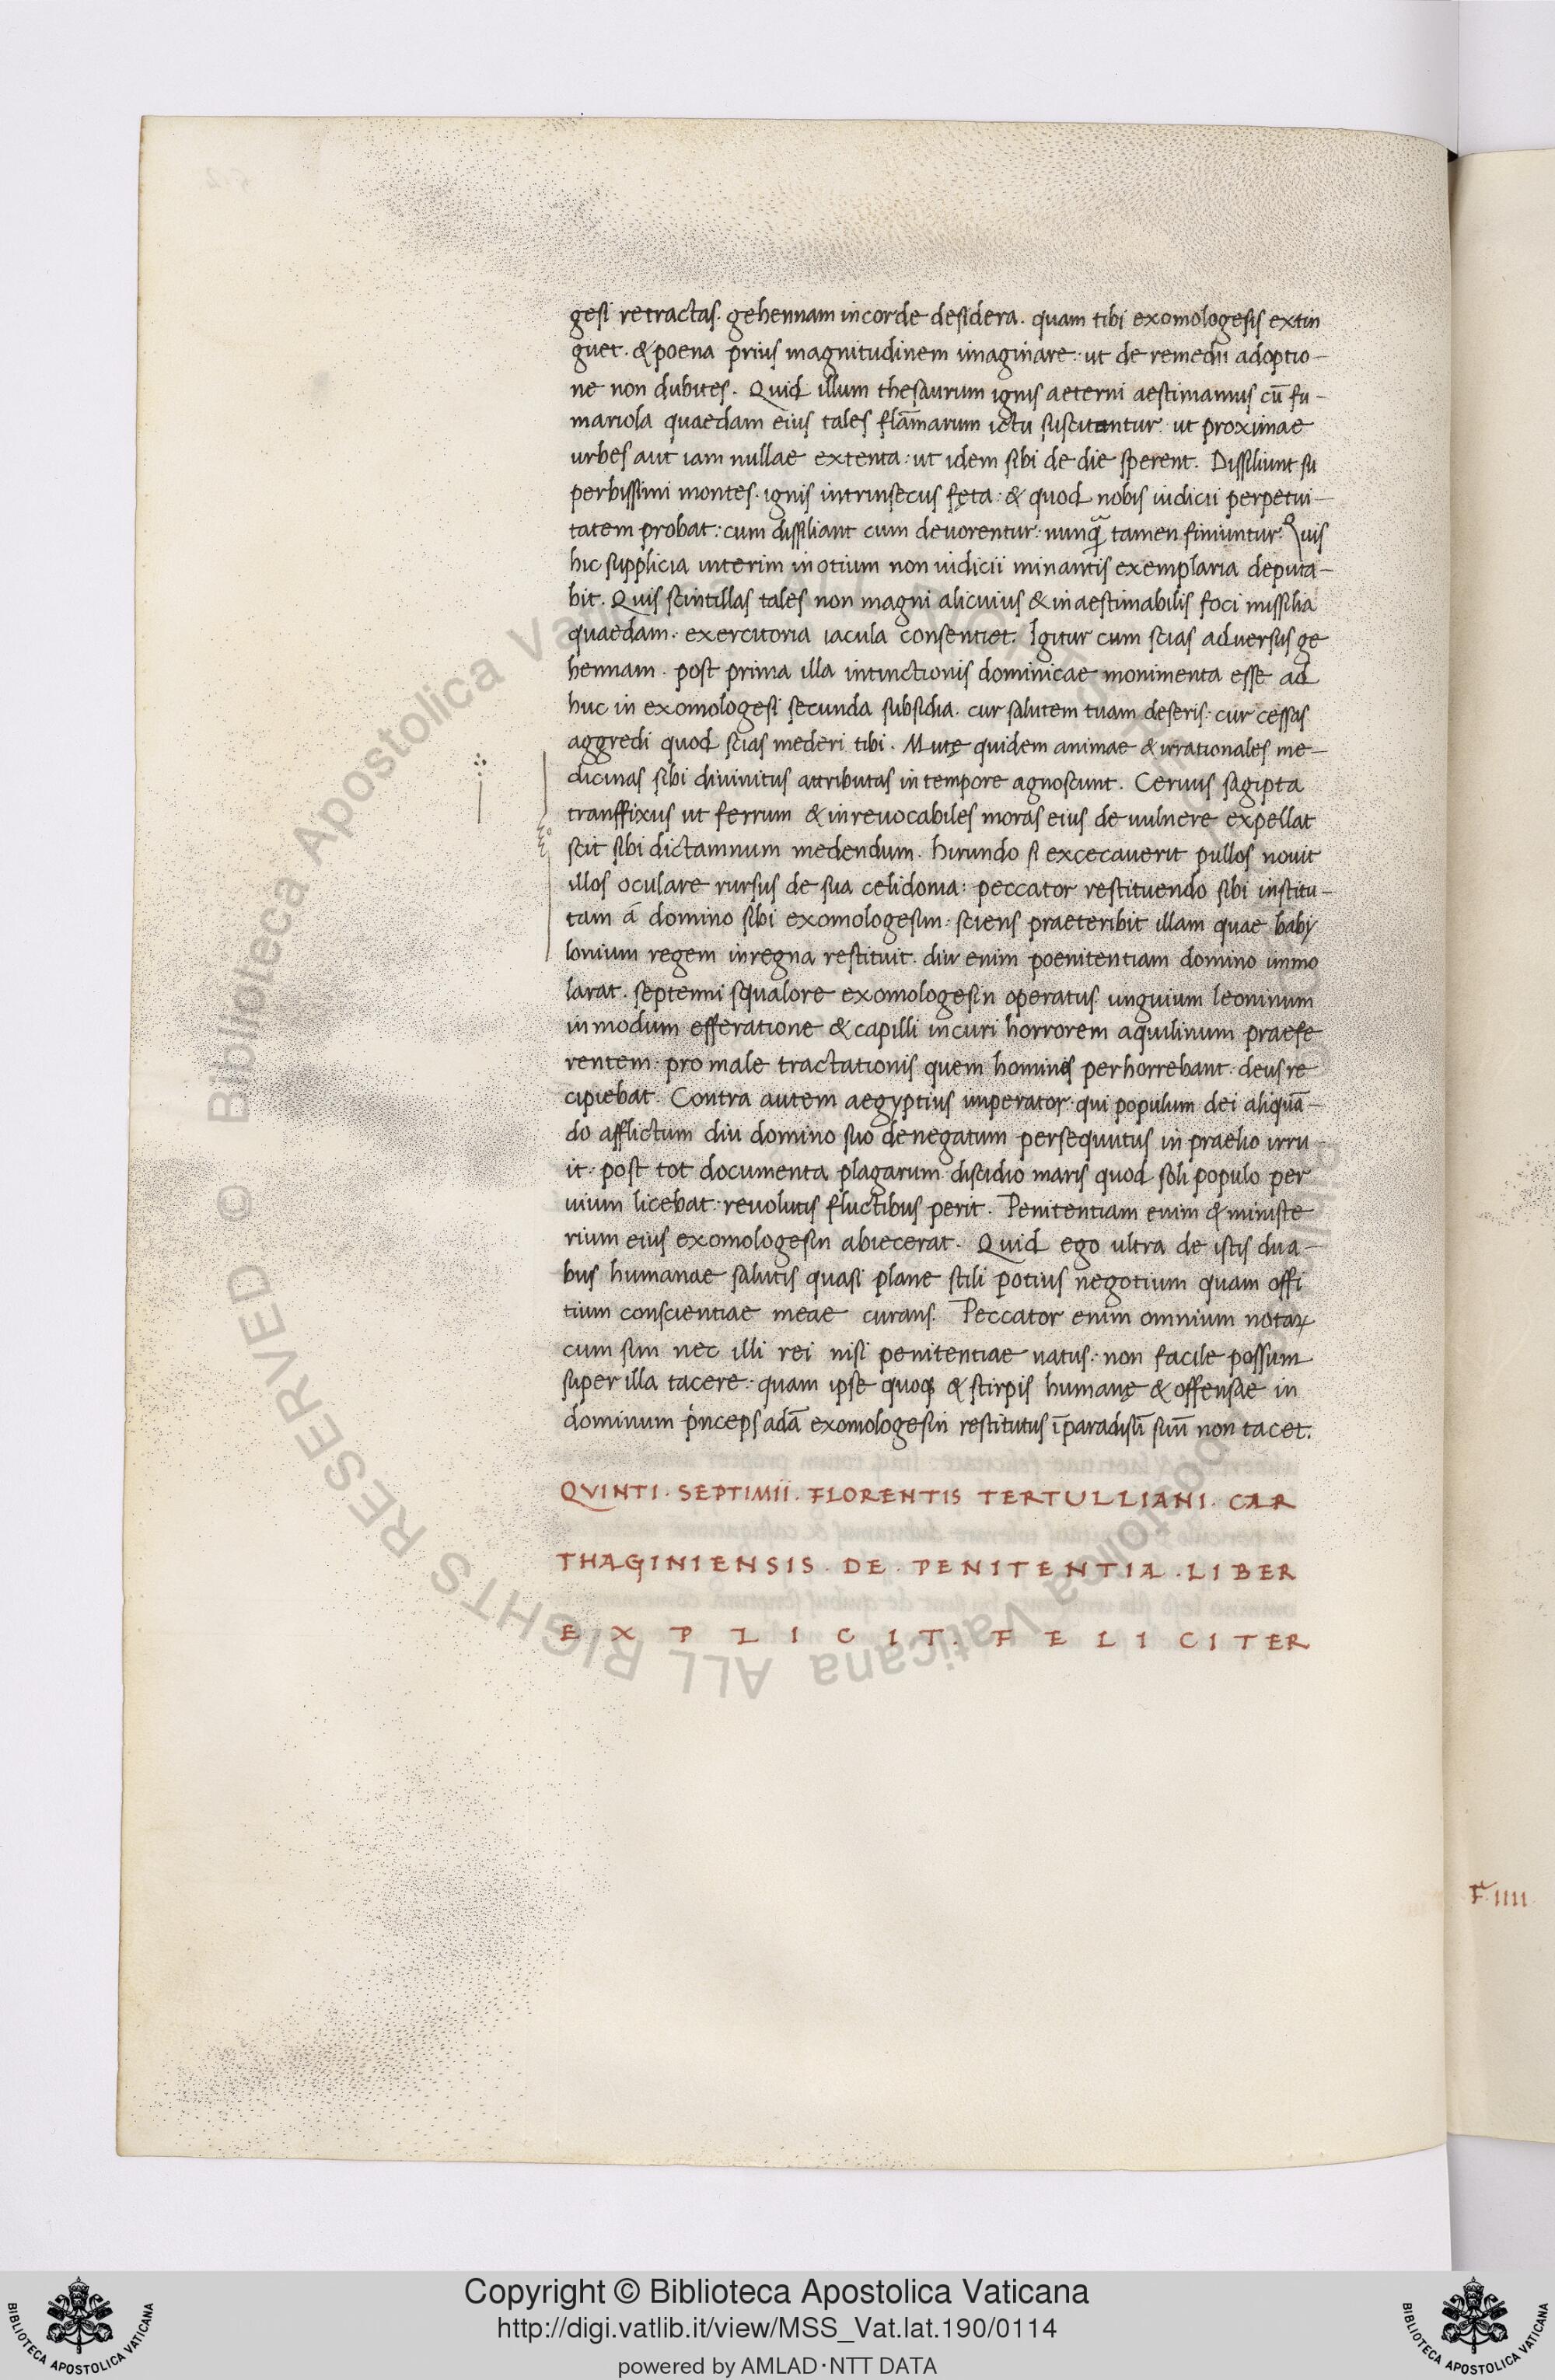 gesi retractas. gehennam in corde desidera. quam tibi exomologesis extin
guet. & poena prius magnitudinem imaginare: ut de remedii adoptio-
ne non dubites. Quid illum thesaurum ignis aeterni aestimamus cū fu-
mariola quaedam eius tales flāmarum ictu suscitantur: ut proximae
urbes aut iam nullae extenta: ut idem sibi de die sperent. Dissiliunt su
perbissimi montes. ignis intrinsecus fęta: & quod nobis iudicii perpetui-
tatem probat: cum dissiliant cum deuorentur: nunq̄ tamen finiuntur. Quis
hic supplicia interim in otium non iudicii minantis exemplaria deputa-
bit. Quis scintillas tales non magni alicuius & inaestimabilis foci missilia
quaedam. exercitoria iacula consentiet. Igitur cum scias adversus ge
hennam. post prima illa intinctionis dominicae monimenta esse ad
huc in exomologesi secunda subsidia. cur salutem tuam deseris: cur cessas
aggredi quod scias mederi tibi. Mutę quidem animae & irrationales me-
dicinas sibi divinitus attributas in tempore agnoscunt. Ceruus sagipta
transfixus ut ferrum & inreuocabiles moras eius de uulnere expellat
scit sibi dictamnum medendum. hirundo si excecauerit pullos nouit
illos oculare rursus de sua celidonia: peccator restituendo sibi institu-
tam á domino sibi exomologesim: sciens praeteribit illam quae baby
lonium regem in regna restituit. diu enim poenitentiam domino immo
larat. septenni squalore exomologesin operatus unguium leoninum
in modum efferatione & capilli incuri horrorem aquilinum praefe
rentem: pro male tractationis quem homines perhorrebant: deus re
cipiebat. Contra autem aegyptius imperator: qui populum dei aliquā-
do afflictum diu domino suo denegatum persequutus in praelio irru
it: post tot documenta plagarum: discidio maris quod soli populo per
uium licebat: reuolutis fluctibus perit. Penitentiam enim & ministe
rium eius exomologesin abiecerat. Quid ego ultra de istis dua-
bus humanae salutis quasi plane stili potius negotium quam offi
tium conscientiae meae curans. Peccator enim omnium notaꝝ
cum sim nec illi rei nisi penitentiae natus: non facile possum
super illa tacere: quam ipse quoq; & stirpis humanę & offensae in
dominum princeps adā exomologesin restitutus ī paradisū suū non tacet.
QVINTI. SEPTIMII. FLORENTIS TERTULLIANI. CAR
THAGINIENSIS. DE. PENITENTIA. LIBER
EXPLICIT. FELICITER
F. IIII
Copyright © Biblioteca Apostolica Vaticana
http://digi.vatlib.it/view/MSS_Vat.lat.190/0114
powered by AMLAD·NTT DATA
BIBLIOTECA APOSTOLICA VATICANA
BIBLIOTECA APOSTOLICA VATICANA
© Biblioteca Apostolica Vaticana ALL RIGHTS RESERVED